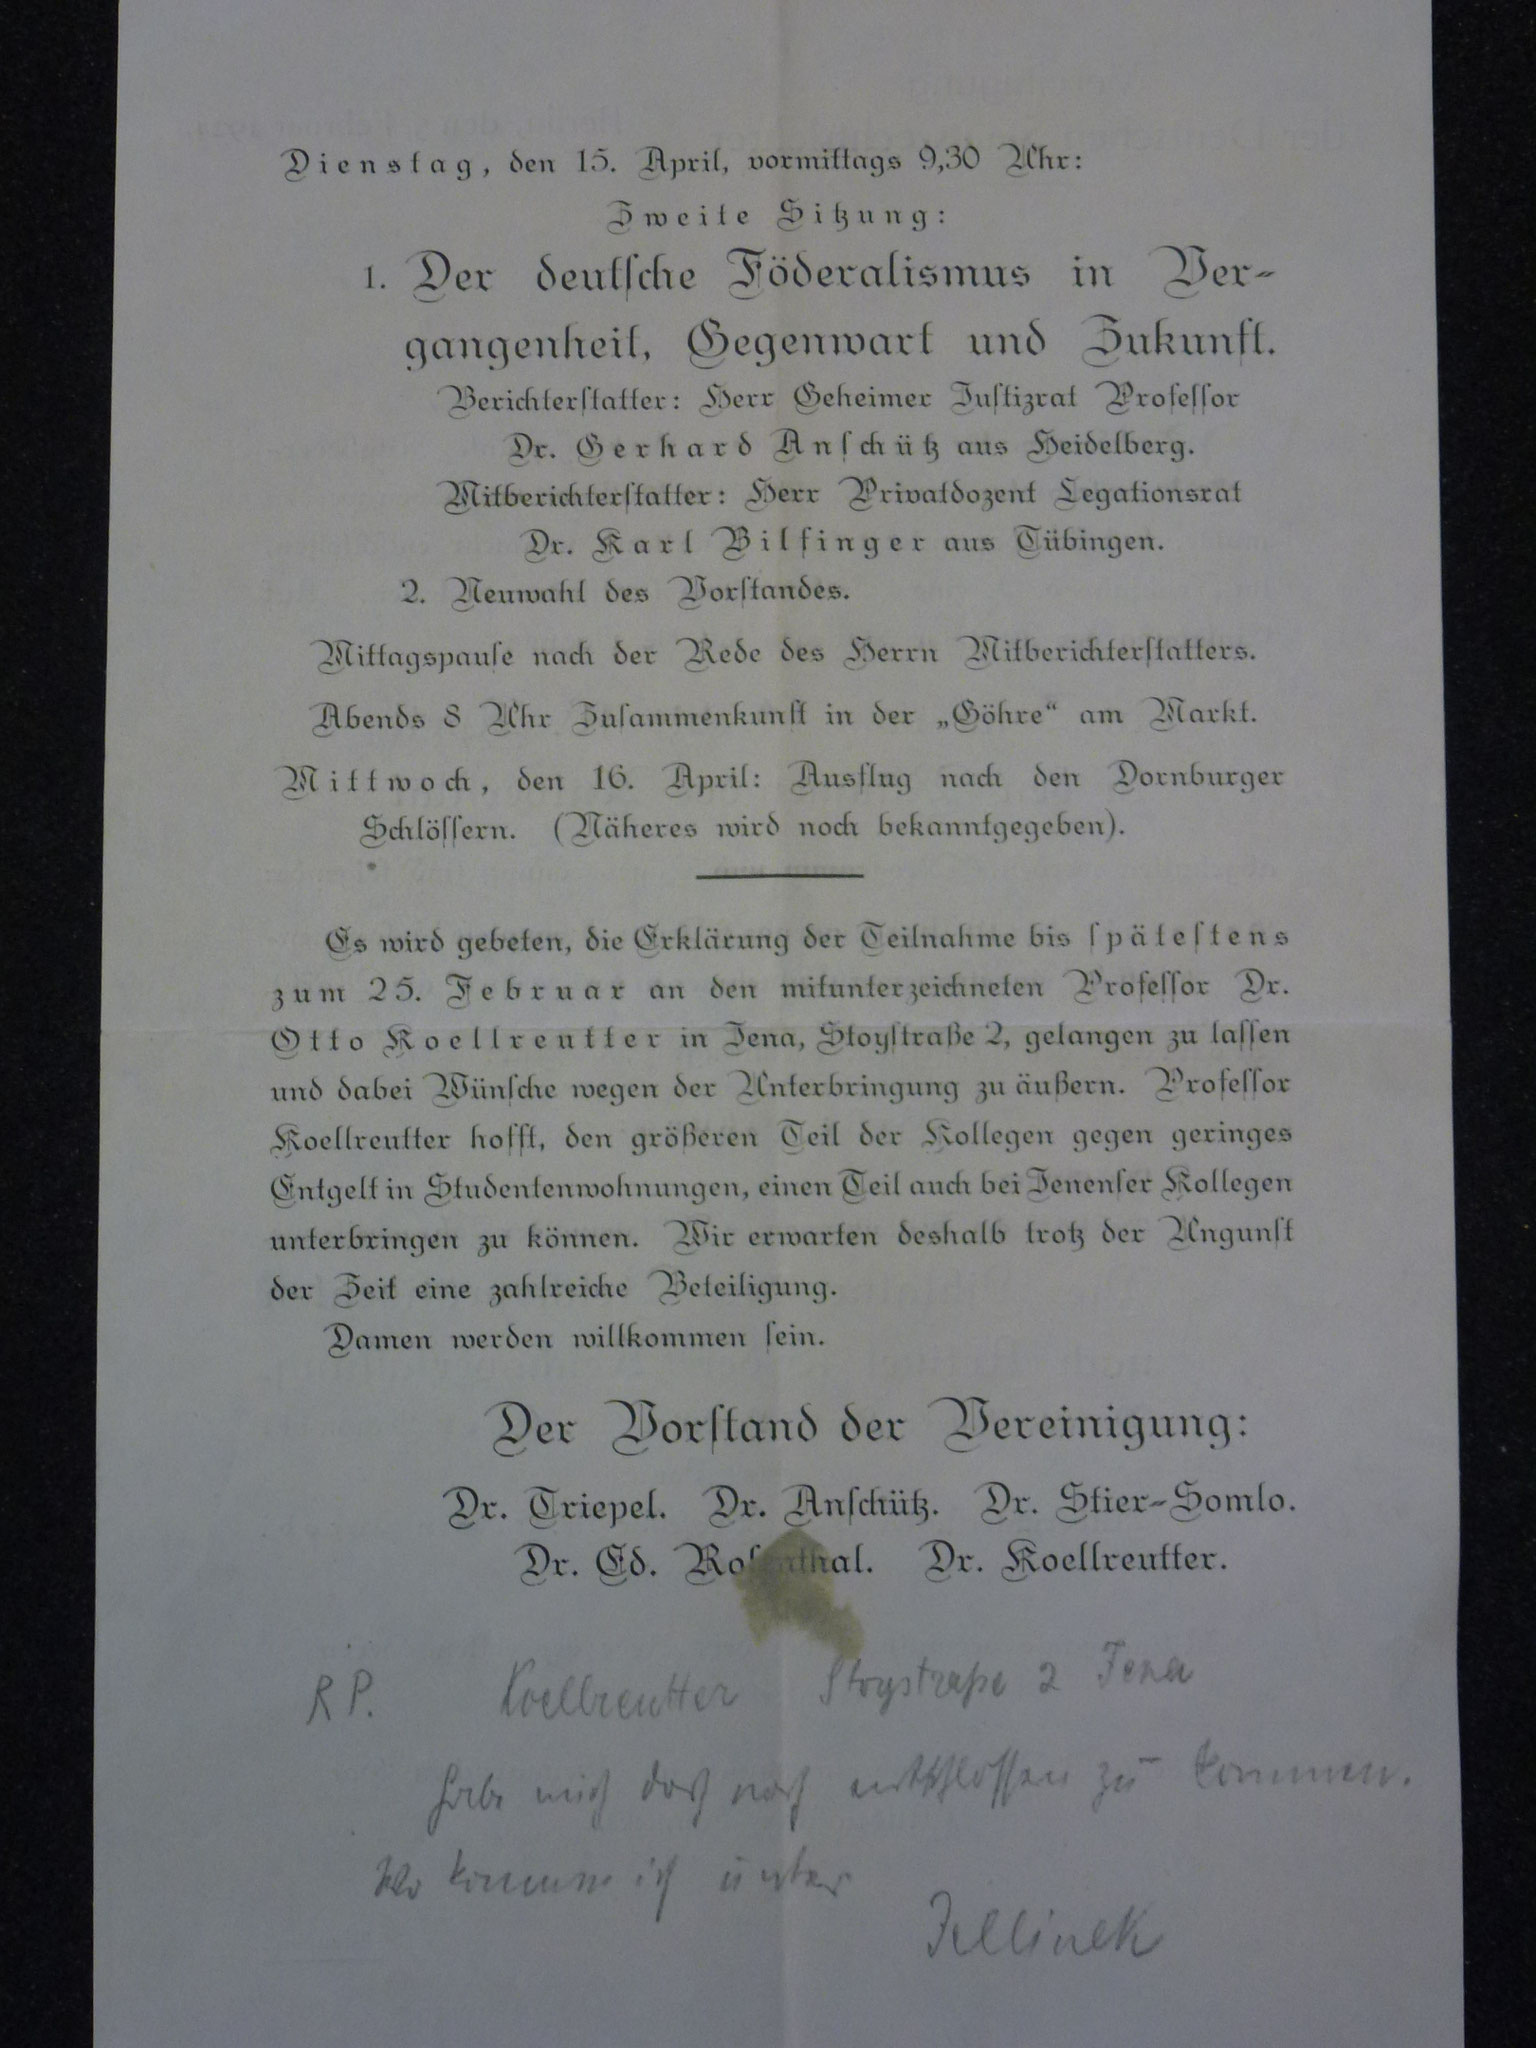 Dienstag, den 15. April, vormittags 9,30 Uhr:
Zweite Sitzung:
1. Der deutsche Föderalismus in Ver-
gangenheit, Gegenwart und Zukunft.
Berichterstatter: Herr Geheimer Justizrat Professor
Dr. Gerhard Anschütz aus Heidelberg.
Mitberichterstatter: Herr Privatdozent Legationsrat
Dr. Karl Bilfinger aus Tübingen.
2. Neuwahl des Vorstandes.
Mittagspause nach der Rede des Herrn Mitberichterstatters.
Abends 8 Uhr Zusammenkunft in der „Göhre“ am Markt.
Mittwoch, den 16. April: Ausflug nach den Dornburger
Schlössern. (Näheres wird noch bekanntgegeben).
Es wird gebeten, die Erklärung der Teilnahme bis spätestens
zum 25. Februar an den mitunterzeichneten Professor Dr.
Otto Koellreutter in Jena, Stoystraße 2, gelangen zu lassen
und dabei Wünsche wegen der Unterbringung zu äußern. Professor
Koellreutter hofft, den größeren Teil der Kollegen gegen geringes
Entgelt in Studentenwohnungen, einen Teil auch bei Jenenser Kollegen
unterbringen zu können. Wir erwarten deshalb trotz der Ungunst
der Zeit eine zahlreiche Beteiligung.
Damen werden willkommen sein.
Der Vorstand der Vereinigung:
Dr. Triepel. Dr. Anschütz. Dr. Stier-Somlo.
Dr. Ed. Rosenthal. Dr. Koellreutter.
RP. Koellreutter Stoystraße 2 Jena
Habe mich doch noch entschlossen zu kommen.
Wo komme ich unter
Jellinek